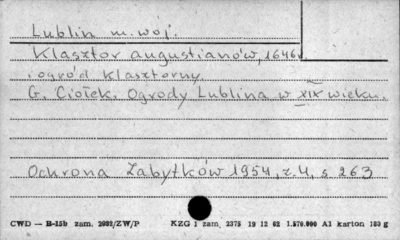 Lublin m. woj.
Klasztor augustianów, 1646r
i ogród klasztorny
G. Ciołek. Ogrody Lublina w XIX wieku.
Ochrona Zabytków 1954, z. 4, s 263
CWD — H-15b zam. 2002/ZW/P KZG 1 zam. 2375 19 12 62 1.570.000 A1 karton 180 g